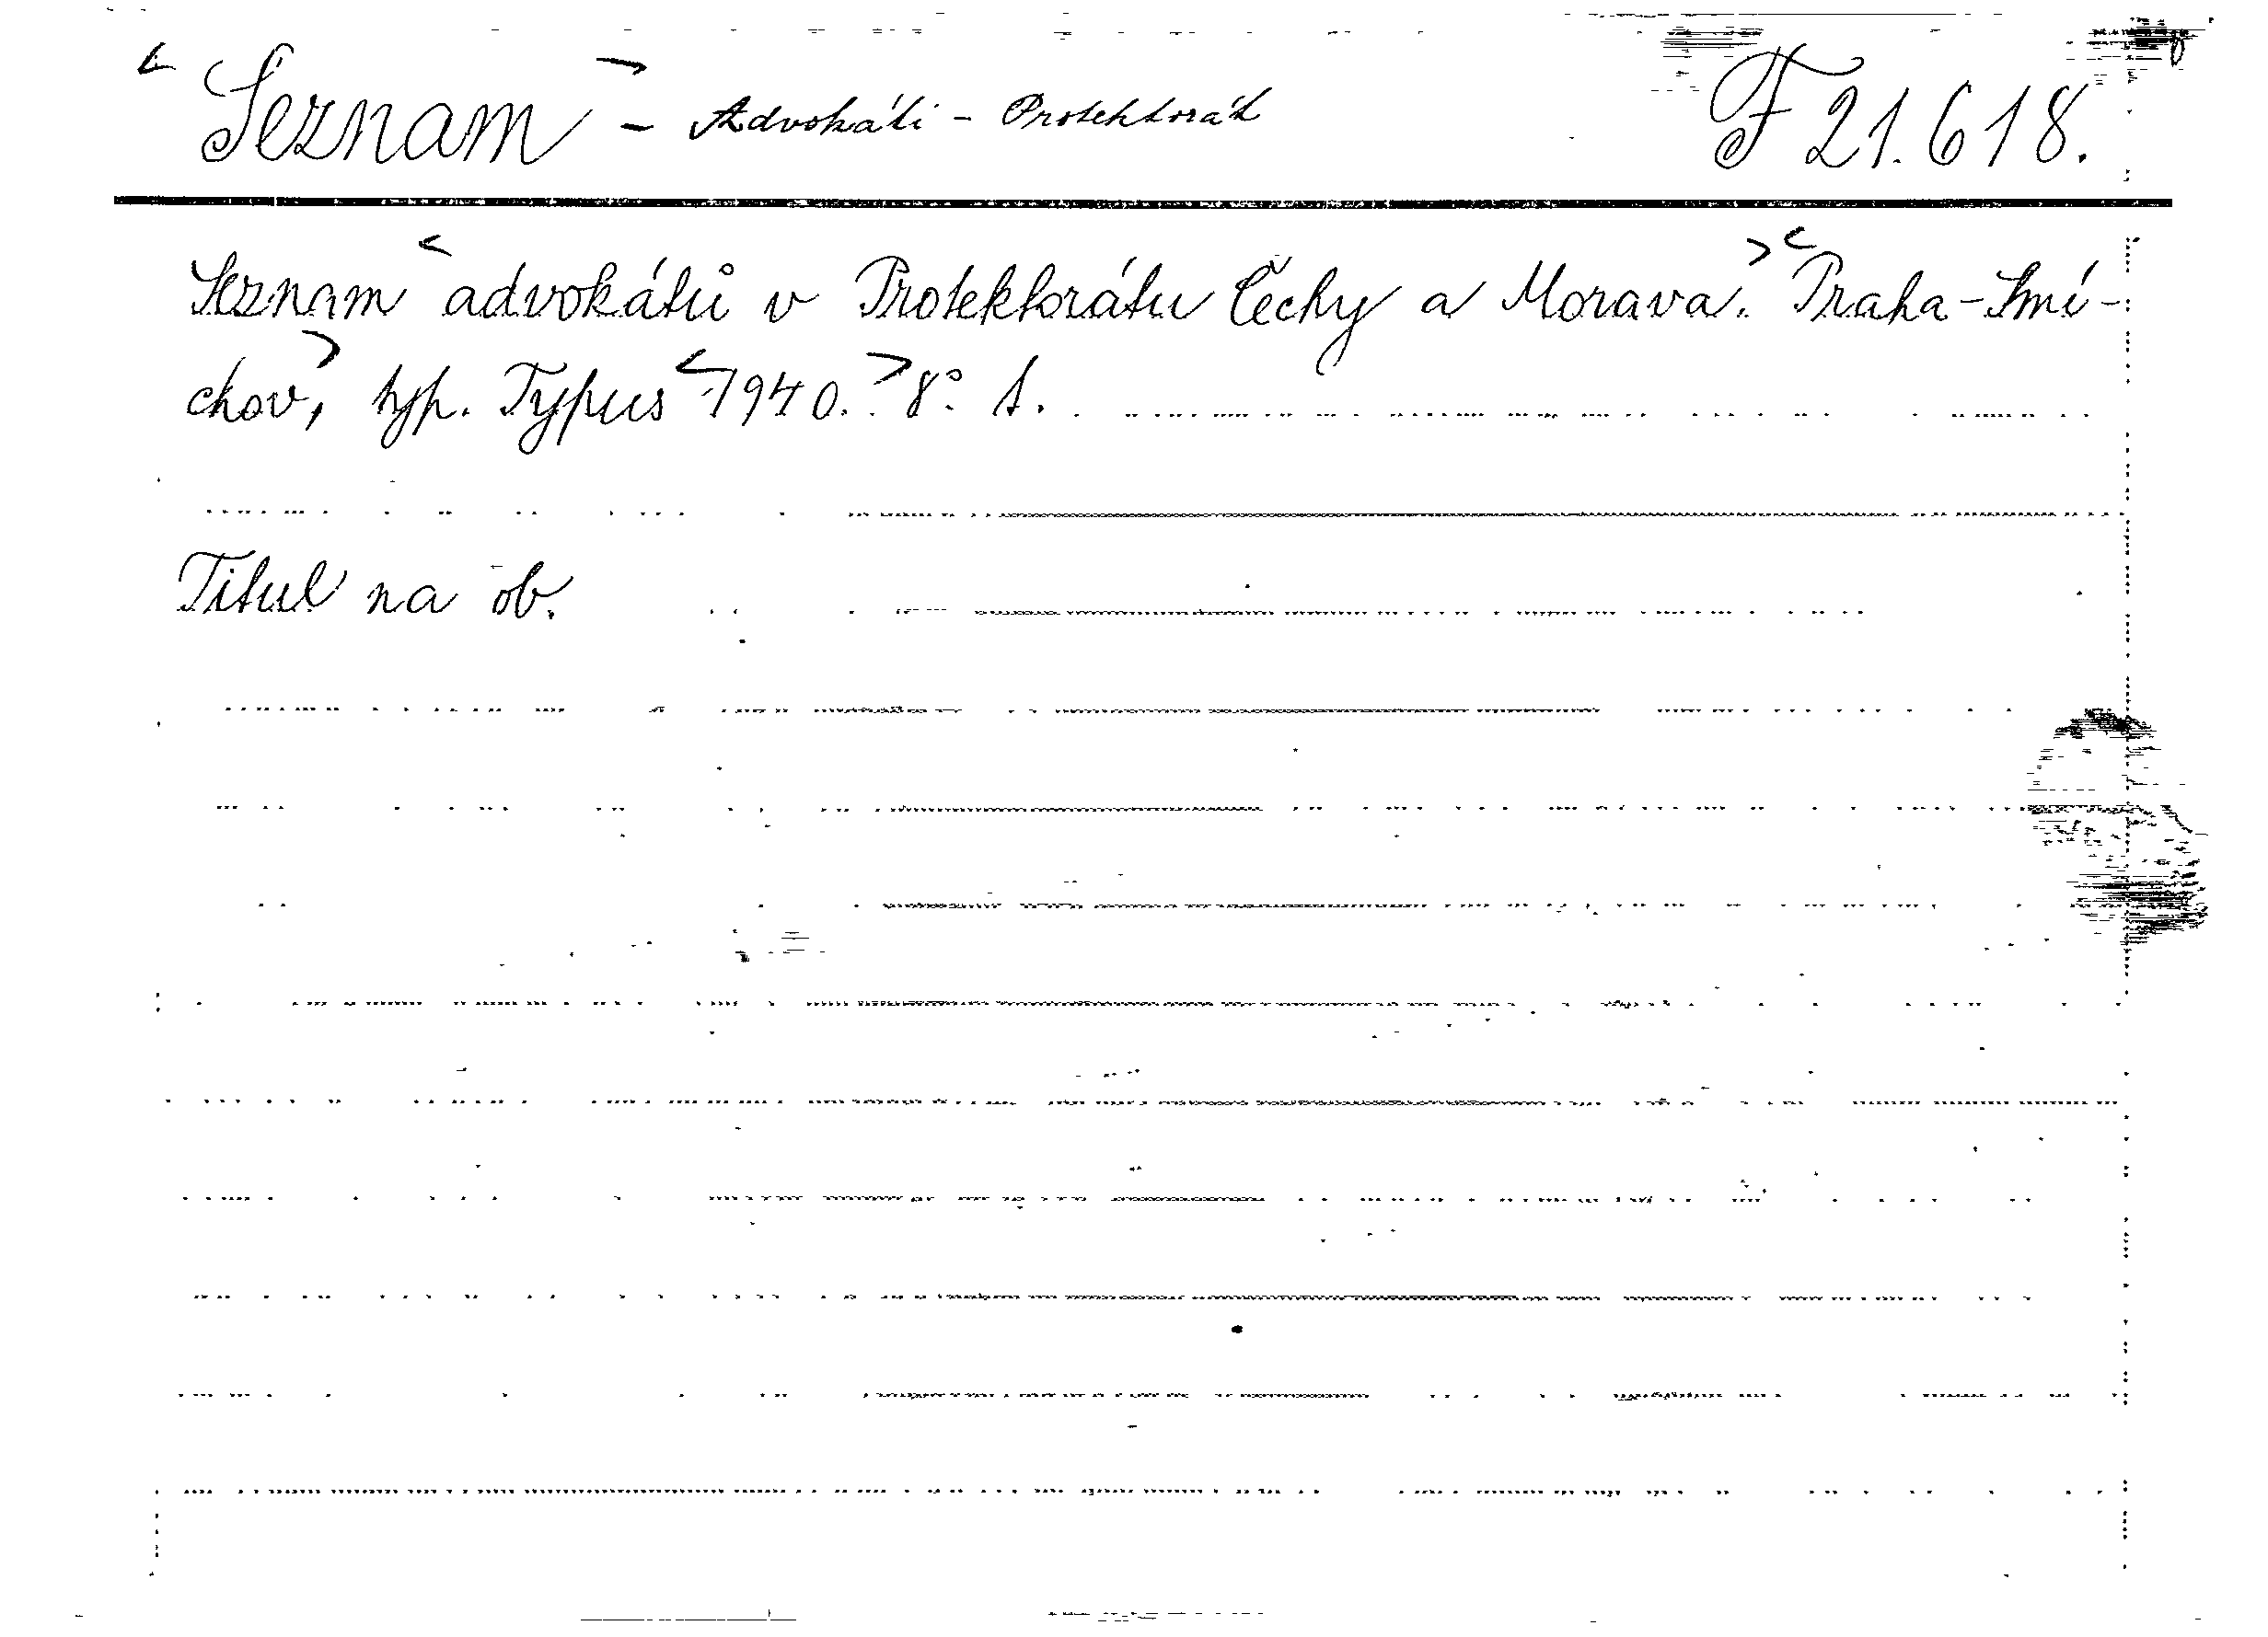 < Seznam > - Advokáti - Protektorát F 21.618.
Seznam < advokátů v Protektorátu Čechy a Morava. > < Praha-Smí-
chov, > typ. Typus < 1940. > 8° S.
Titul na ob.